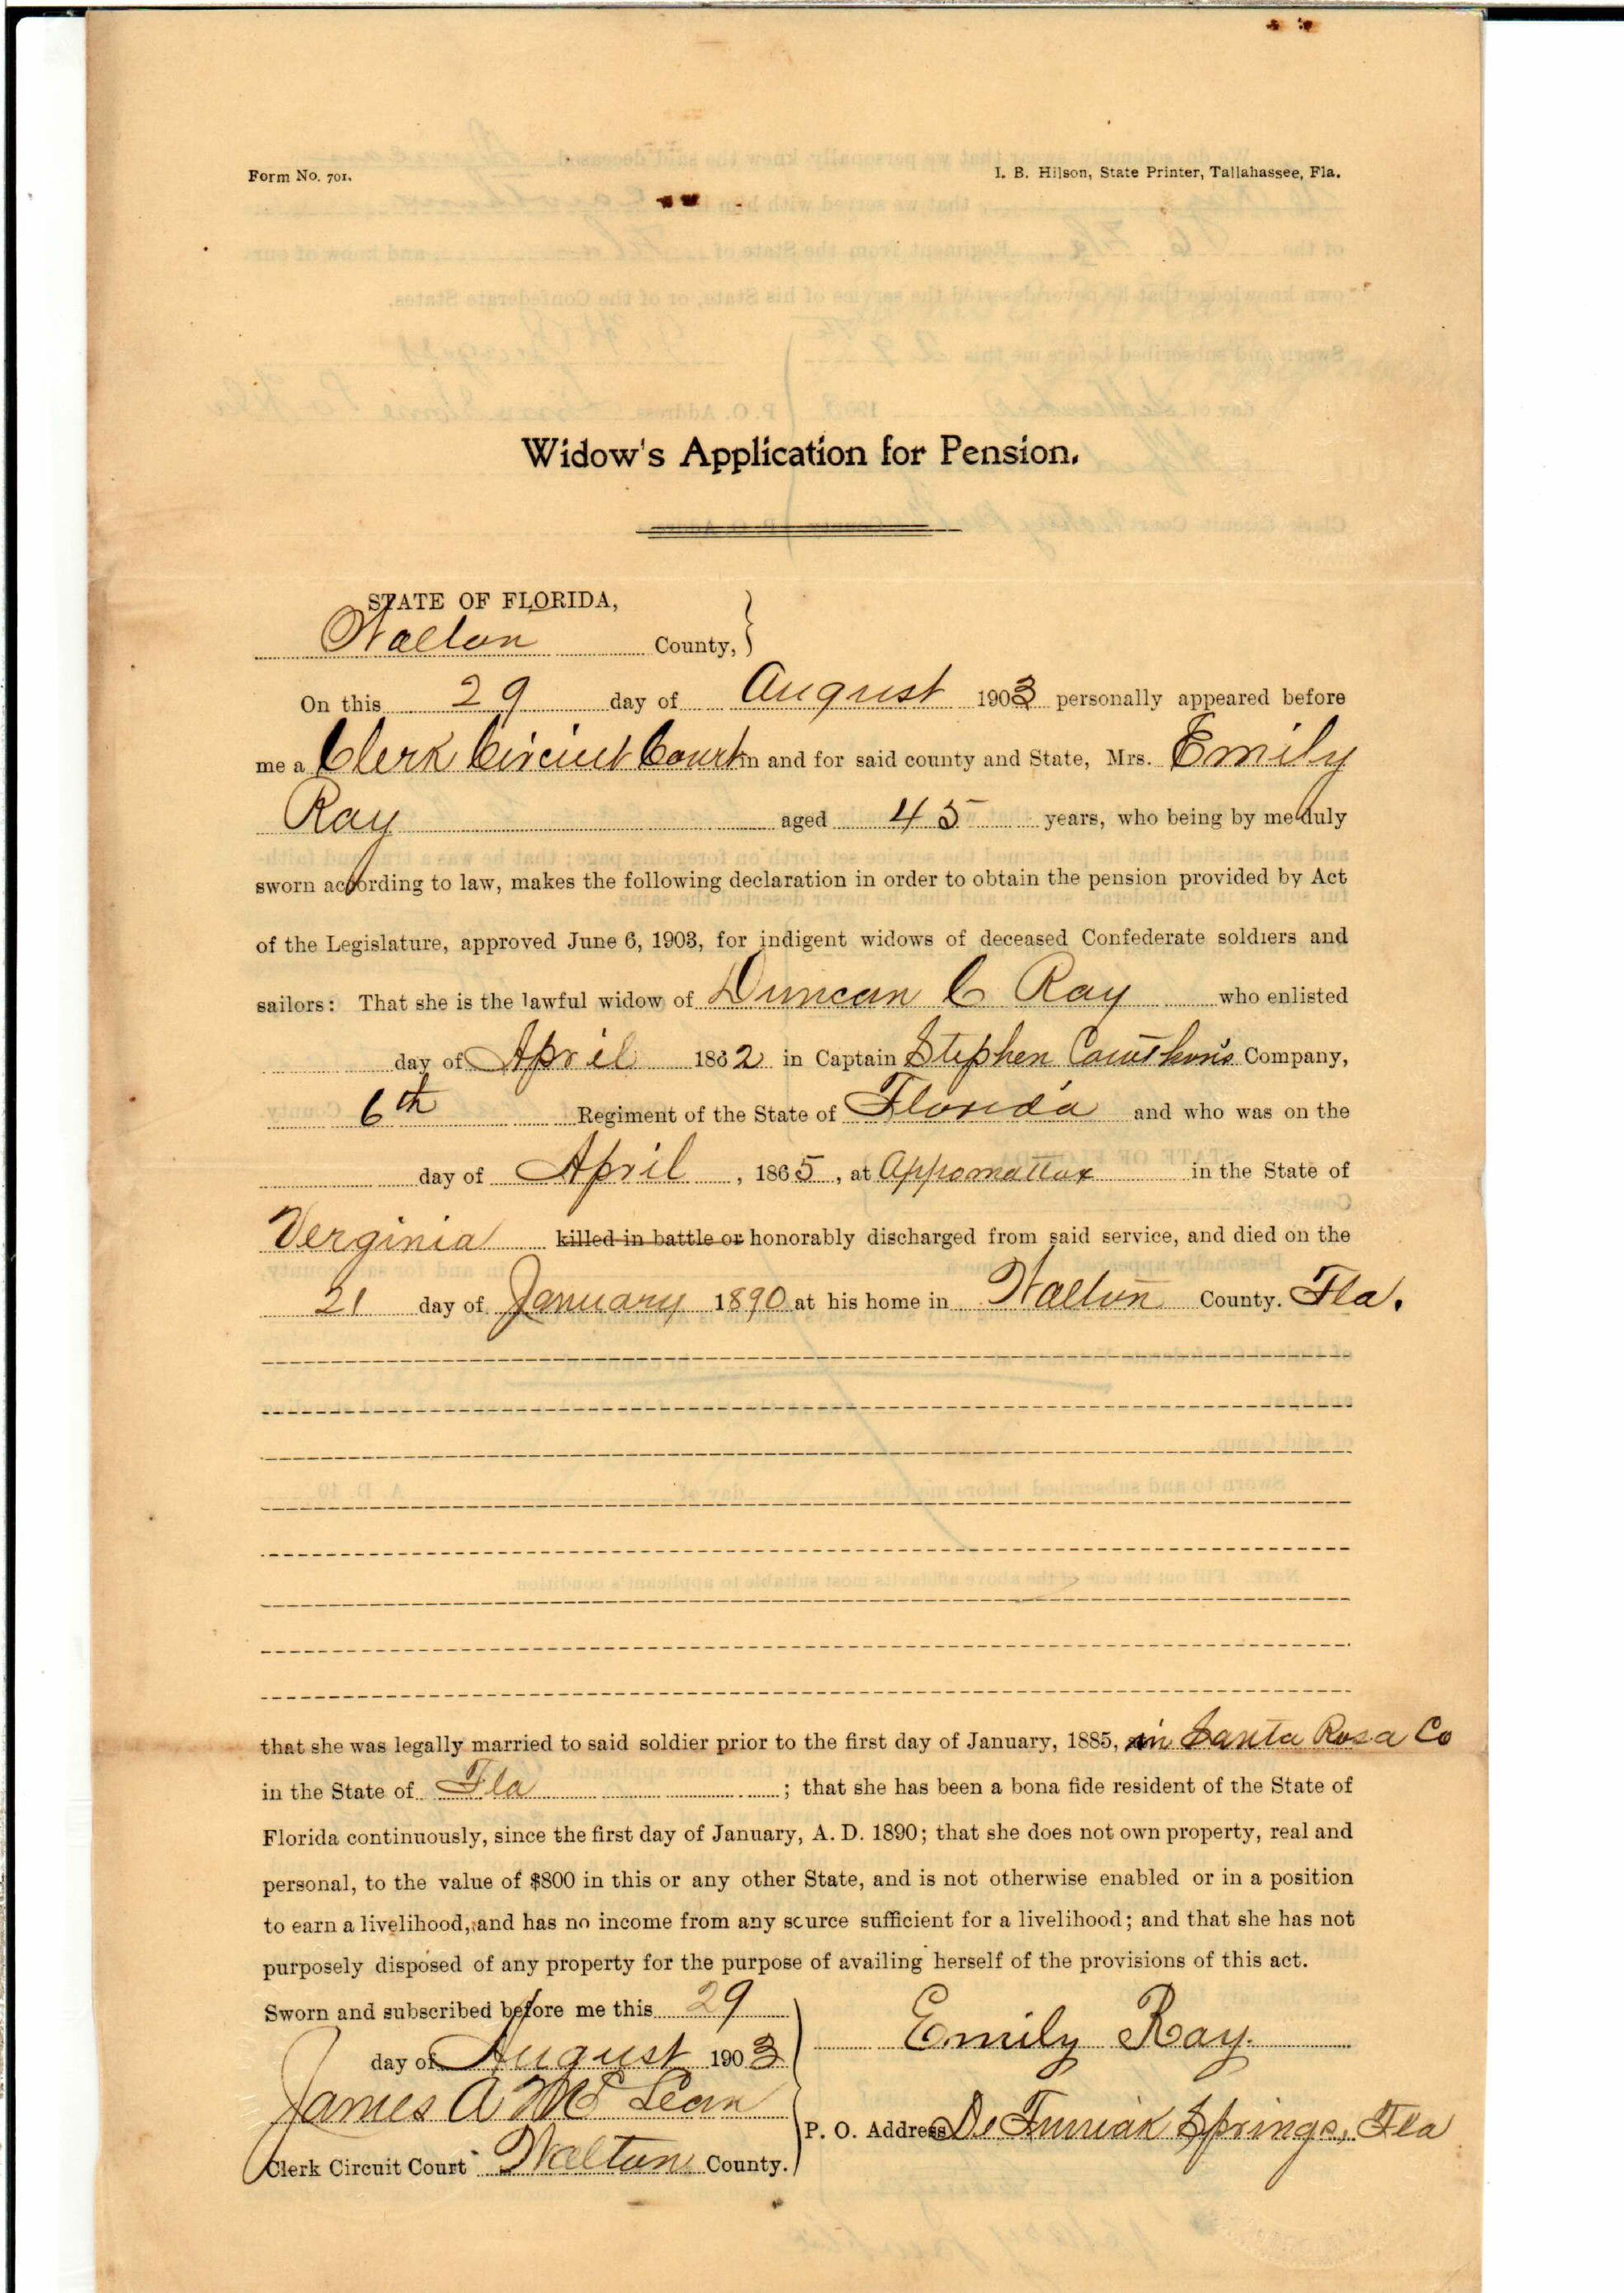 Form No. 701.
I. B. Hilson, State Printer, Tallahassee, Fla.
Widow's Application for Pension.
STATE OF FLORIDA,
Walton County,
On this 29 day of August 1903 personally appeared before
me a Clerk Circiut Court in and for said county and State, Mrs. Emily
Ray aged 45 years, who being by me duly
sworn according to law, makes the following declaration in order to obtain the pension provided by Act
of the Legislature, approved June 6, 1903, for indigent widows of deceased Confederate soldiers and
sailors: That she is the lawful widow of Duncan C Ray who enlisted
day of April 1862 in Captain Stephen Cawthon's Company,
6th Regiment of the State of Florida and who was on the
day of April, 1865, at Appomattox in the State of
Verginia killed in battle or honorably discharged from said service, and died on the
21 day of January 1890 at his home in Walton County. Fla.
that she was legally married to said soldier prior to the first day of January, 1885, in Santa Rosa Co
in the State of Fla ; that she has been a bona fide resident of the State of
Florida continuously, since the first day of January, A. D. 1890; that she does not own property, real and
personal, to the value of $800 in this or any other State, and is not otherwise enabled or in a position
to earn a livelihood, and has no income from any source sufficient for a livelihood; and that she has not
purposely disposed of any property for the purpose of availing herself of the provisions of this act.
Sworn and subscribed before me this 29
day of August 1903
Emily Ray.
James A McLean
P. O. Address De Funiak Springs, Fla
Clerk Circuit Court Walton County.